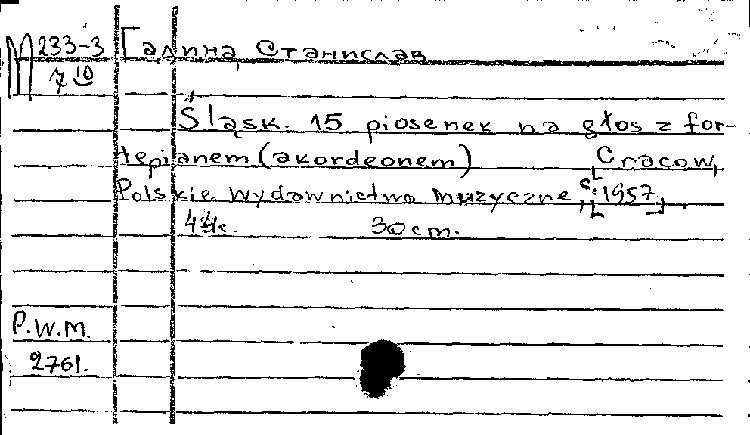 М 233-3 Галина, Станислав
7 10
Śląsk. 15 piosenek na głos z for-
tepianem (akordeonem) [Cracow,
Polskie Wydawnictwo Muzyczne, c. 1957]
44 c. 30 cm.
P.W.M.
2761.